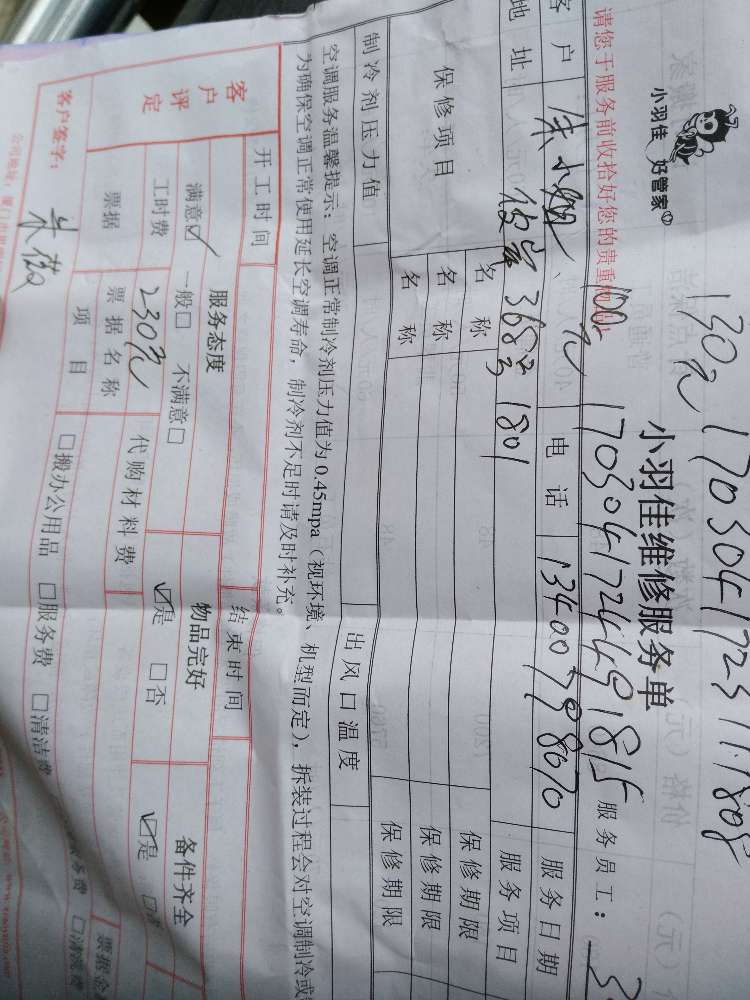 小羽佳 好管家
130元 17030417231111808
小羽佳维修服务单
请您于服务前收拾好您的贵重物品!
100元 1703041724491815
服务员工:
客户 朱小姐 电话 13400798670 服务日期
地址 368号 1801 服务项目
保修项目 名称 保修期限
名称 保修期限
名称 保修期限
制冷剂压力值 出风口温度
空调服务温馨提示:空调正常制冷剂压力值为0.45mpa(视环境、机型而定),拆装过程会对空调制冷或
为确保空调正常使用延长空调寿命,制冷剂不足时请及时补充。
开工时间 结束时间
客户评定 服务态度 物品完好 备件齐全
满意☑ 一般□ 不满意□ ☑是 □否 ☑是 □否
工时费 230元 代购材料费
票据 票据名称
项目 □搬办公用品 □服务费 □清洁费
票据金
客户签字: